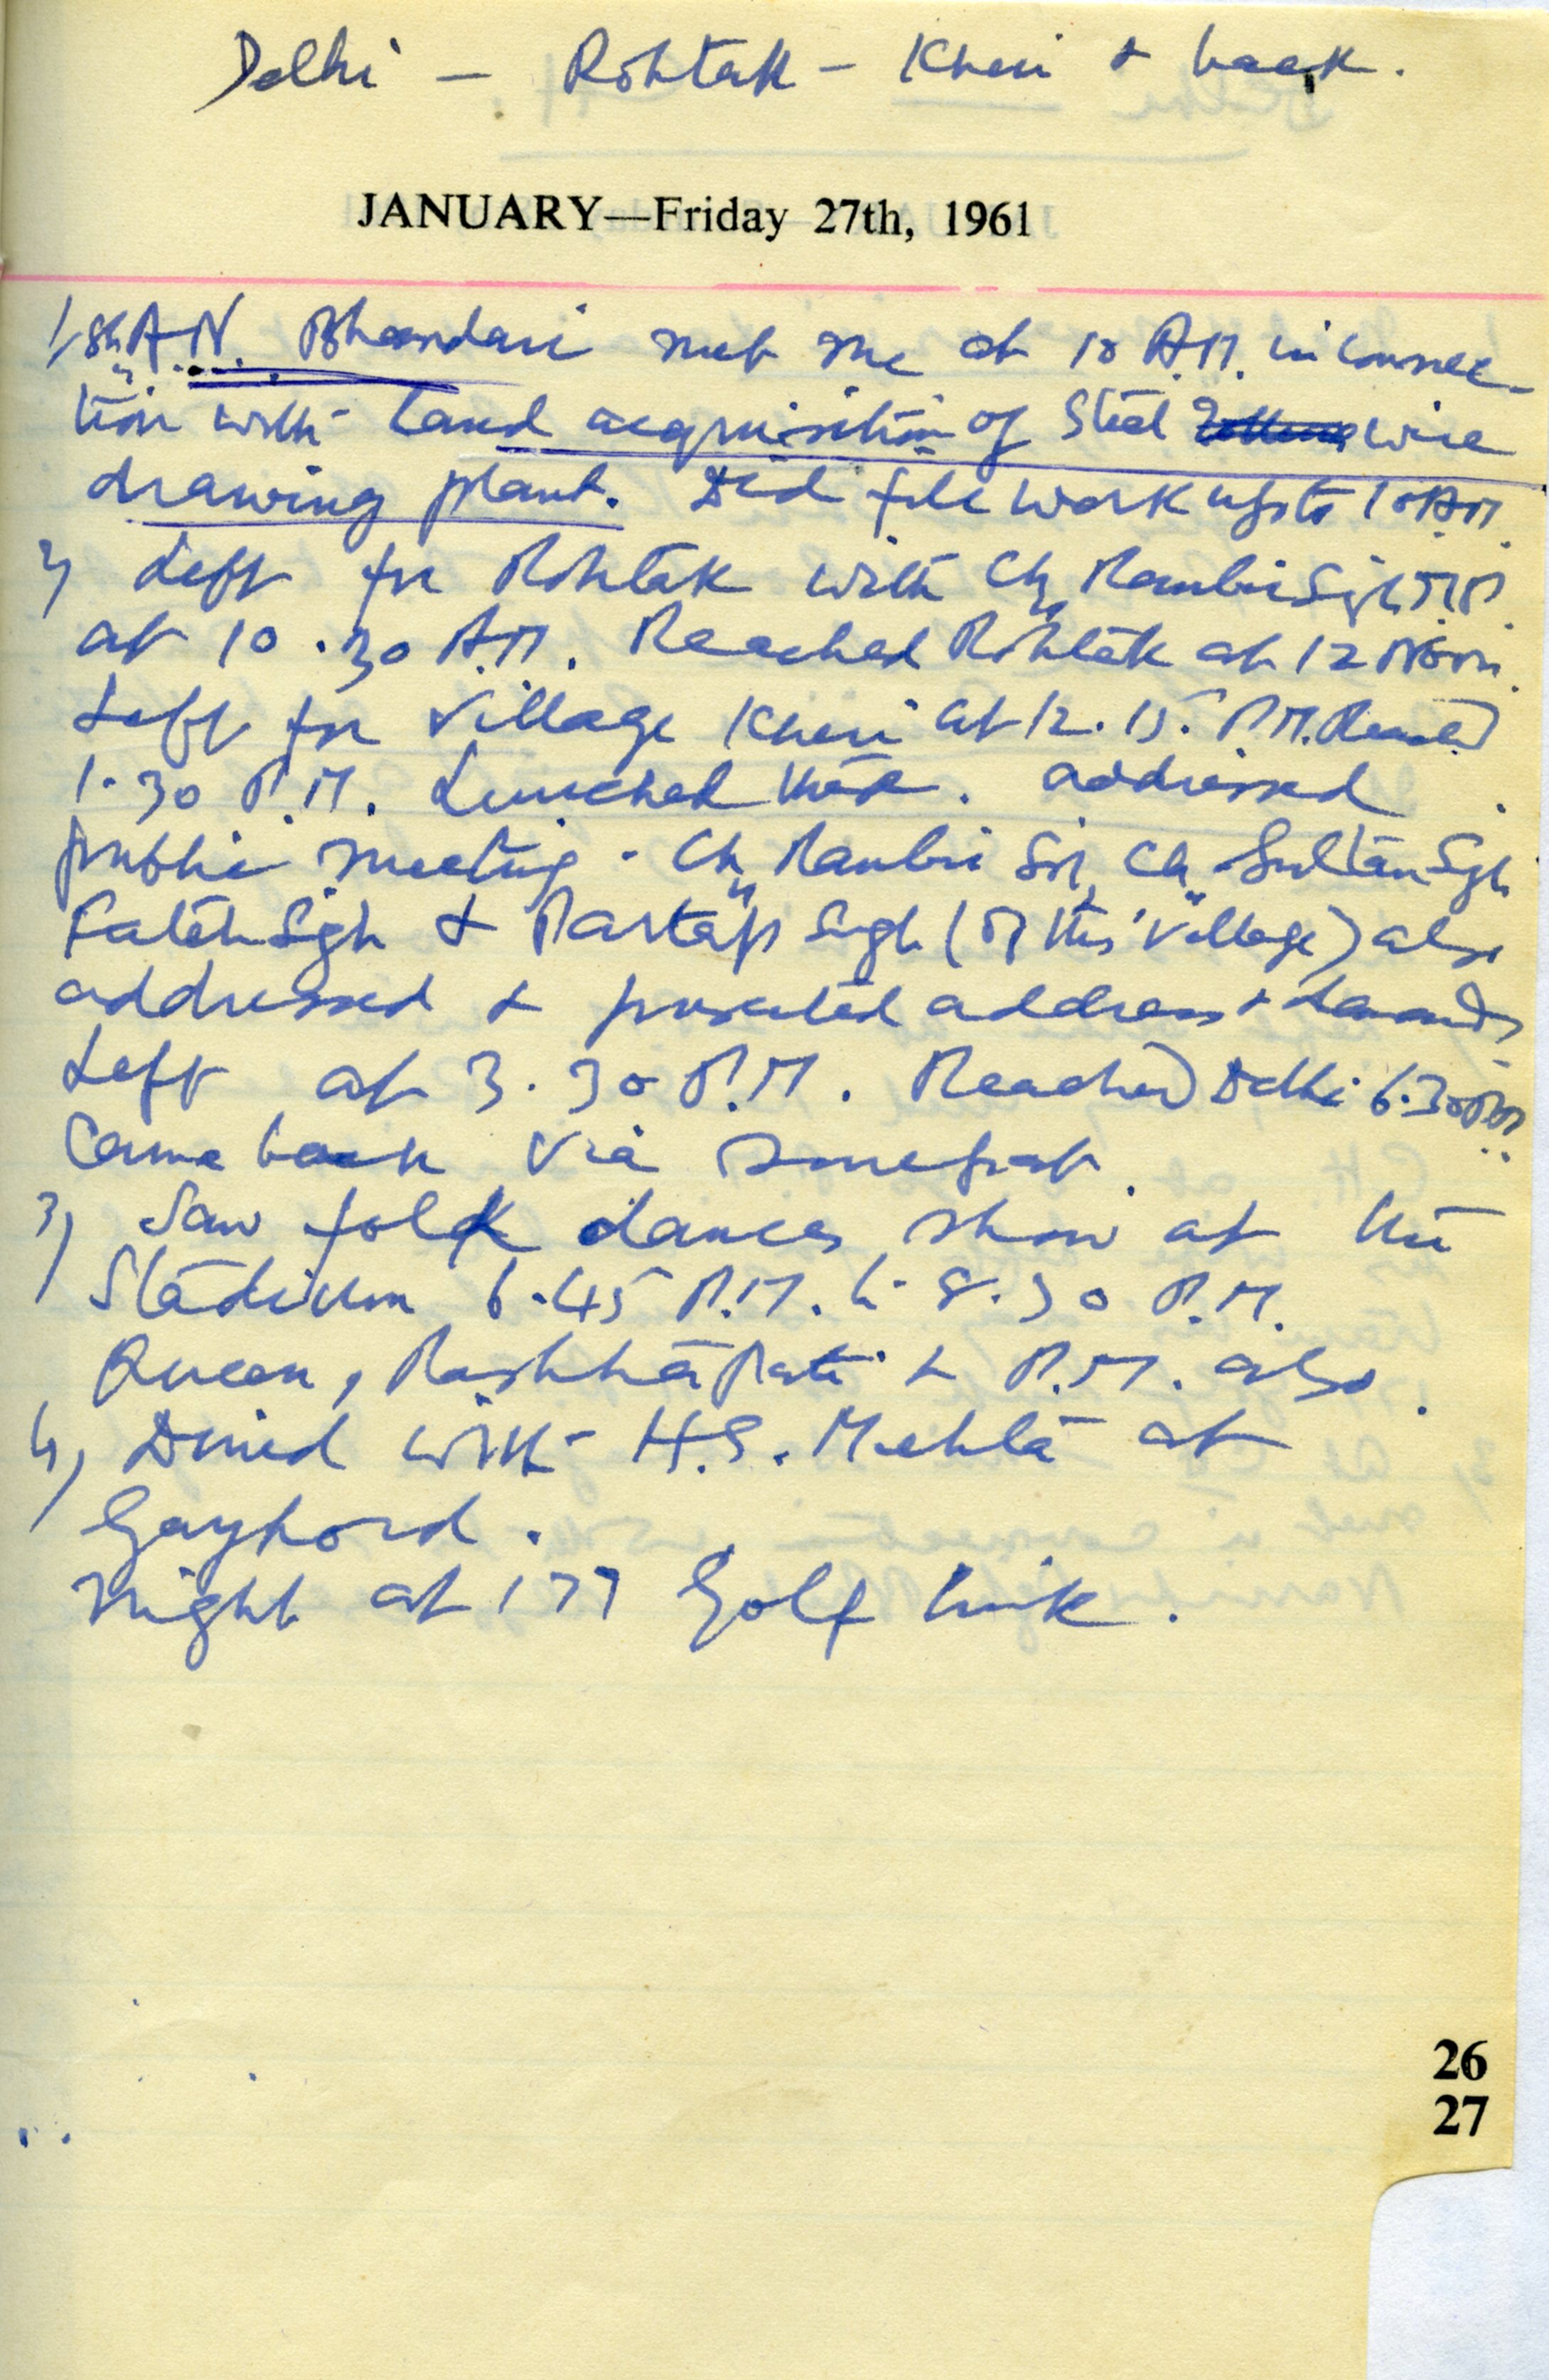 Delhi — Rohtak — Kheri & back.
JANUARY—Friday 27th, 1961
1, Sh. A.N. Bhandari met me at 10 A.M. in connec-
tion with Land acquisition of Steel wire
drawing plant. Did file work upto 10 A.M.
2, Left for Rohtak with Ch. Ranbir Sigh M.P.
at 10.30 A.M. Reached Rohtak at 12 Noon.
Left for village Kheri at 12.15 P.M. Reached
1.30 P.M. Lunched there. Addressed
public meeting. Ch. Ranbir Sigh, Ch. Sultan Sgh
Fateh Sgh & Partap Singh (of this village) also
addressed & presented address & demands
Left at 3.30 P.M. Reached Delhi 6.30 P.M.
Came back via Sonepat.
3, Saw folk dances show at the
Stadium 6.45 P.M. to 8.30 P.M.
Queen, Rashtrapati & P.M. also.
4, Dined with H.S. Mehta at
Gaylord.
Night at 177 Golf Link.
26
27